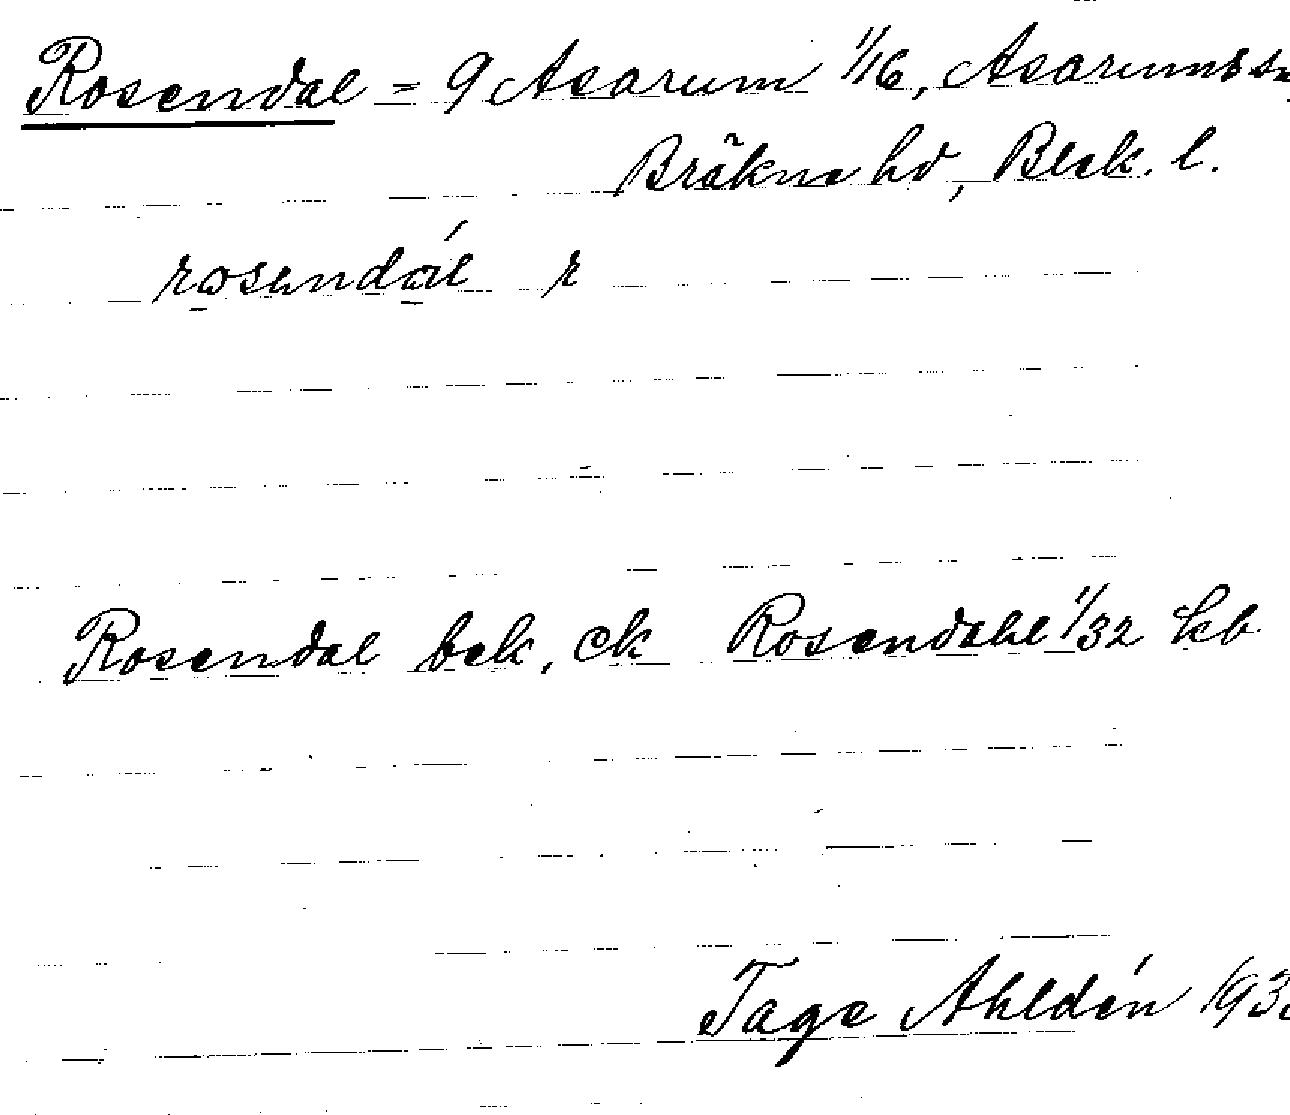 Rosendal = 9 Asarum 1/16, Asarums sn
Bräkne hd, Blek. l.
rosendál r
Rosendal bek, ek Rosendahl 1/32 kb
Tage Ahldén 193